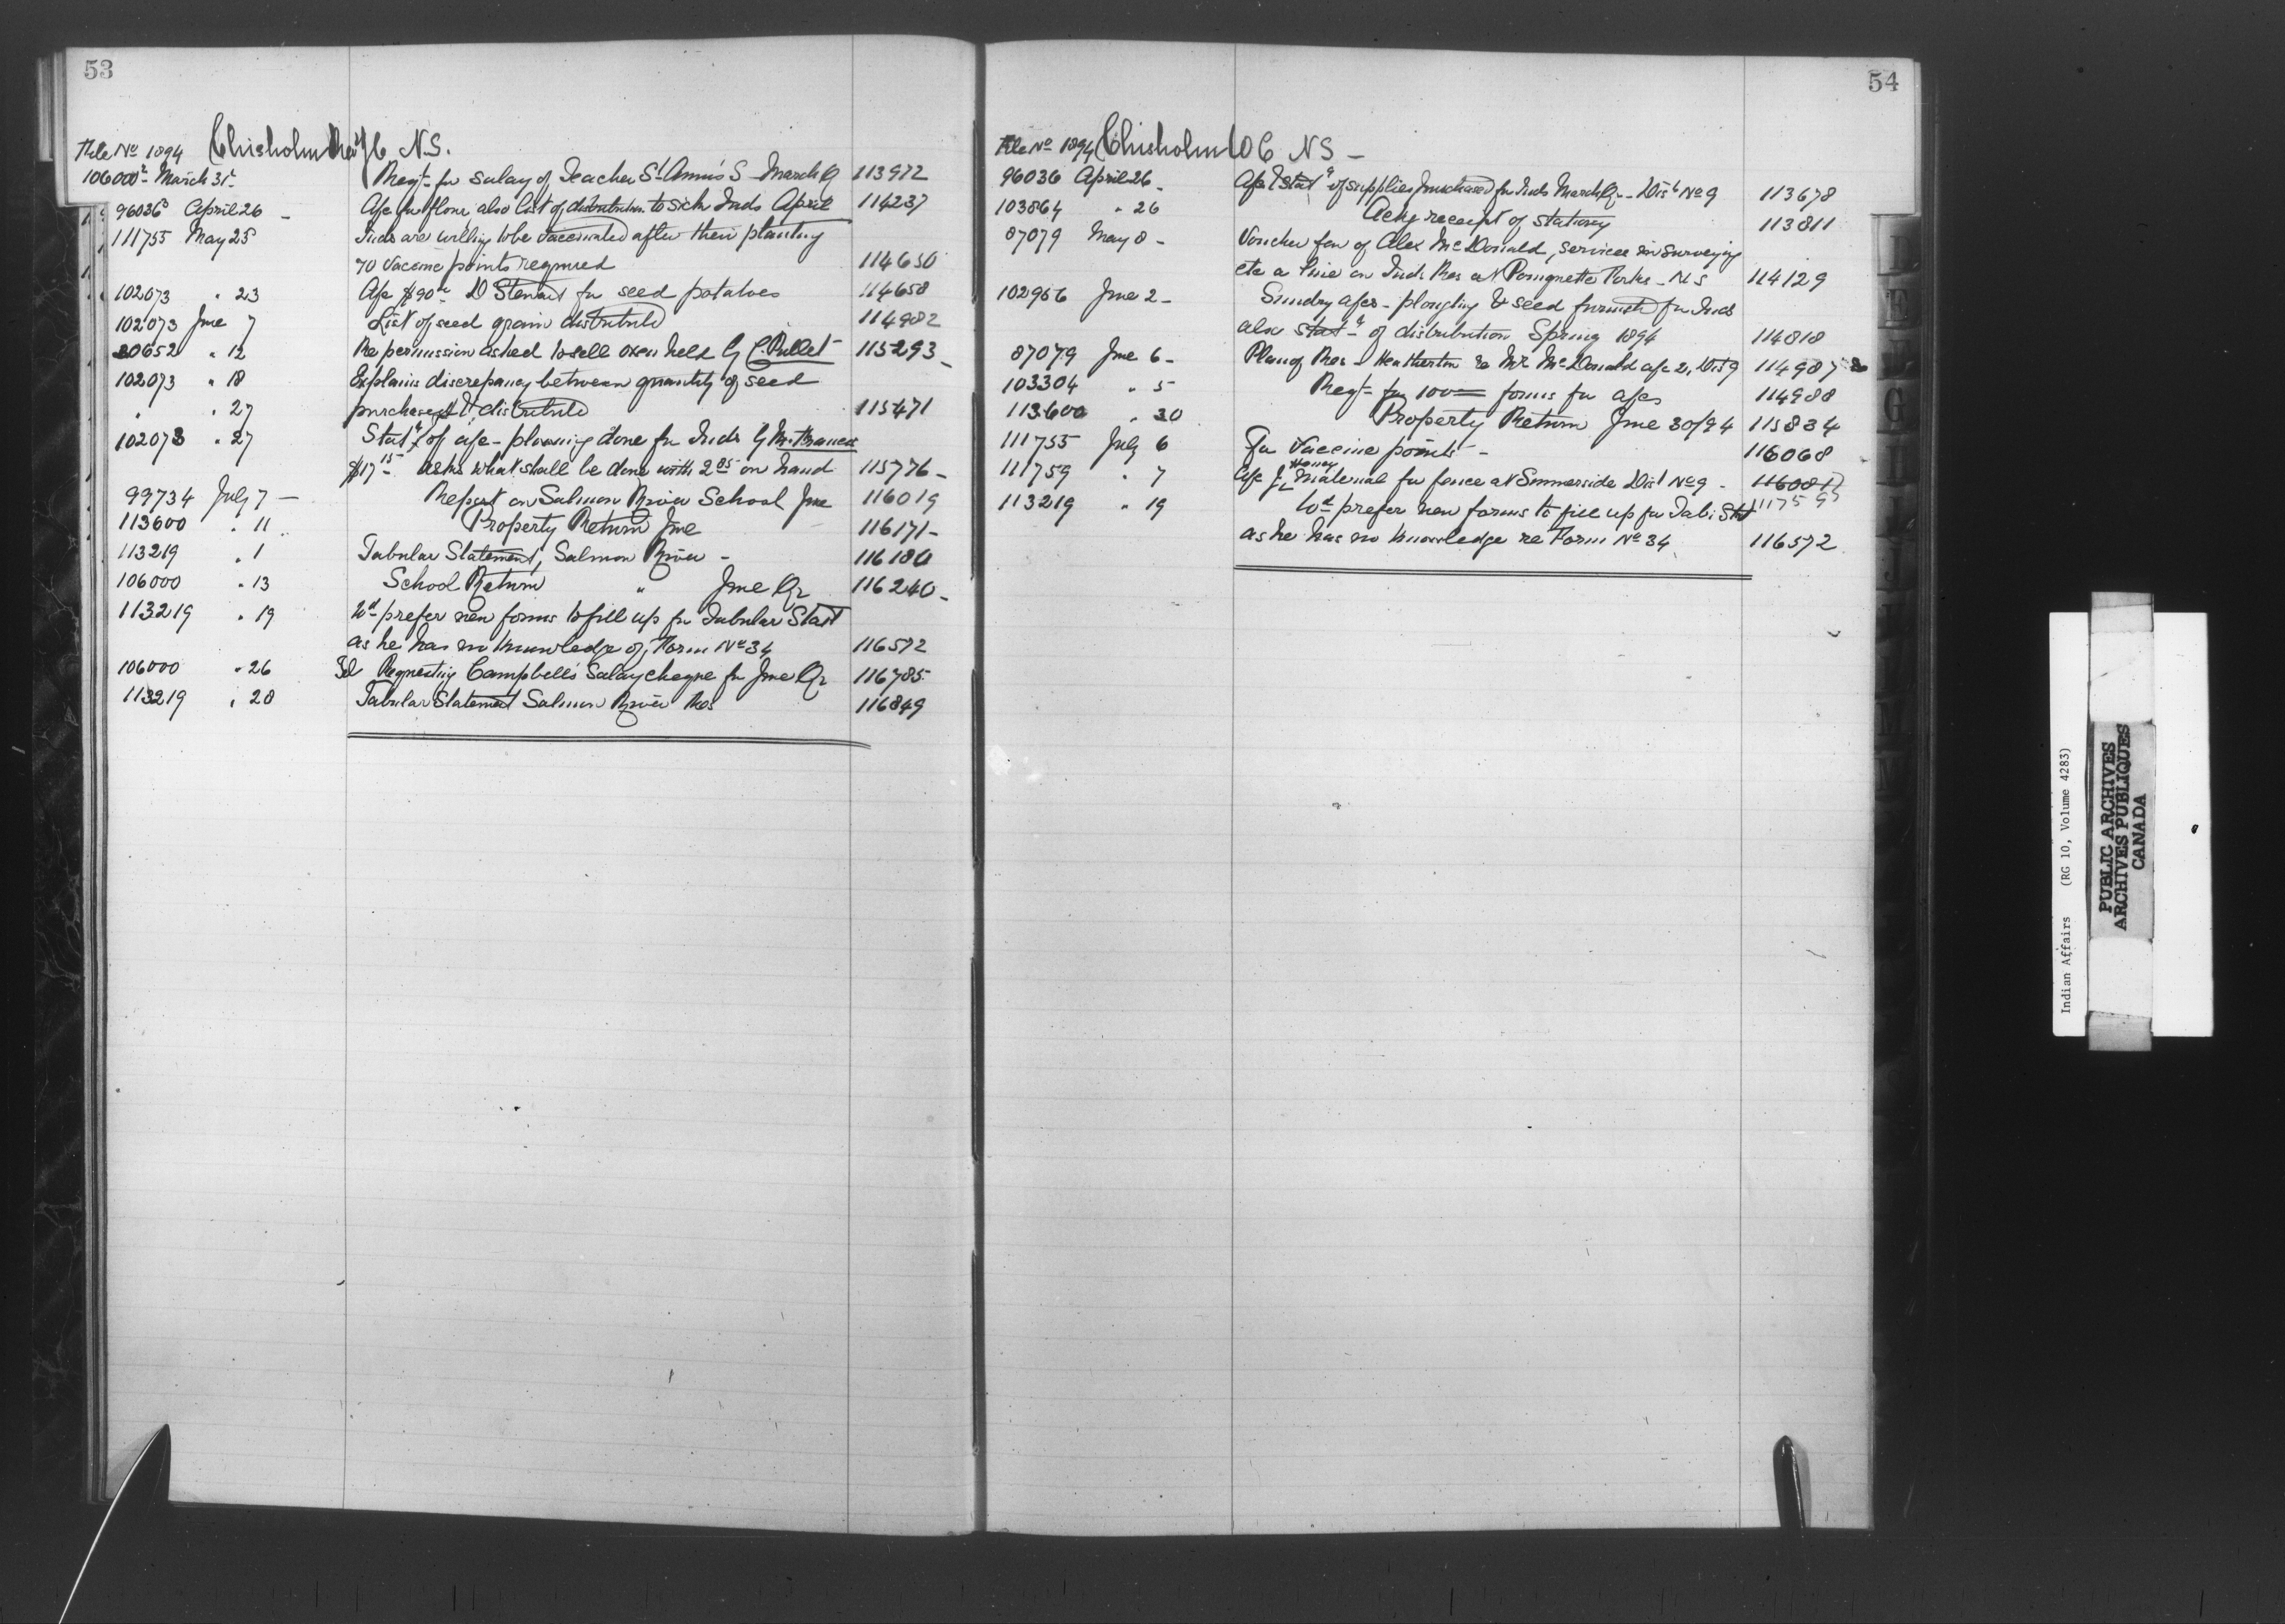 53
File No 1894 Chisholm Rev N.S.
106000 March 31 Reqt for salary of Teacher St Anns S March Qr 113972
96036 April 26 A/c for flour, also list of distribution to sick Inds April 114237
111755 May 25 Inds are willing to be vaccinated after their planting
70 Vaccine points required 114650
102073 " 23 A/c $90 D Stewart for seed potatoes 114658
102073 June 7 List of seed grain distributed 114982
20652 " 12 Re permission asked to sell oxen held by 115293
102073 " 18 Explains discrepancy between quantity of seed
" " 27 purchased & distributed 115471
102073 " 27 Statt of a/c plowing done for Inds by
$17 15 asks what shall be done with 2 85 on hand 115776
99734 July 7 Report on Salmon River School June 116019
113600 " 11 Property Return June 116171
113219 " 1 Tabular Statement, Salmon River 116180
106000 " 13 School Return " June Qr 116240
113219 " 19 Wd prefer new forms to fill up for Tabular Statt
as he has no knowledge of Form No 34 116572
106000 " 26 Requesting Campbell's Salary cheque for June Qr 116785
113219 " 28 Tabular Statement Salmon River Res 116849
54
File No 1894 Chisholm NS
96036 April 26 A/c & Statt of supplies purchased for Inds March Qr Dist No 9 113678
103864 " 26 Ackg receipt of stationery 113811
87079 May 8 Voucher fav of Alex McDonald, services in surveying
etc a line on Inds Res at Pomquette Forks N S 114129
102956 June 2 Sundry a/cs ploughing & seed furnished for Inds
also statt of distribution Spring 1894 114818
87079 June 6 Plan of Res Heatherton re Mr McDonald a/c Dist 9 114987
103304 " 5 Reqt for 100 forms for a/cs 114988
113600 " 30 Property Return June 30/94 115834
111755 July 6 For Vaccine points 116068
111759 " 7 A/c for material for fence at Summerside Dist No 9 116081
117595
113219 " 19 Wd prefer new forms to fill up for Tab: Statt
as he has no knowledge re Form No 34 116572
E
G
H
I
J
Indian Affairs (RG 10, Volume 4283)
PUBLIC ARCHIVES
ARCHIVES PUBLIQUES
CANADA